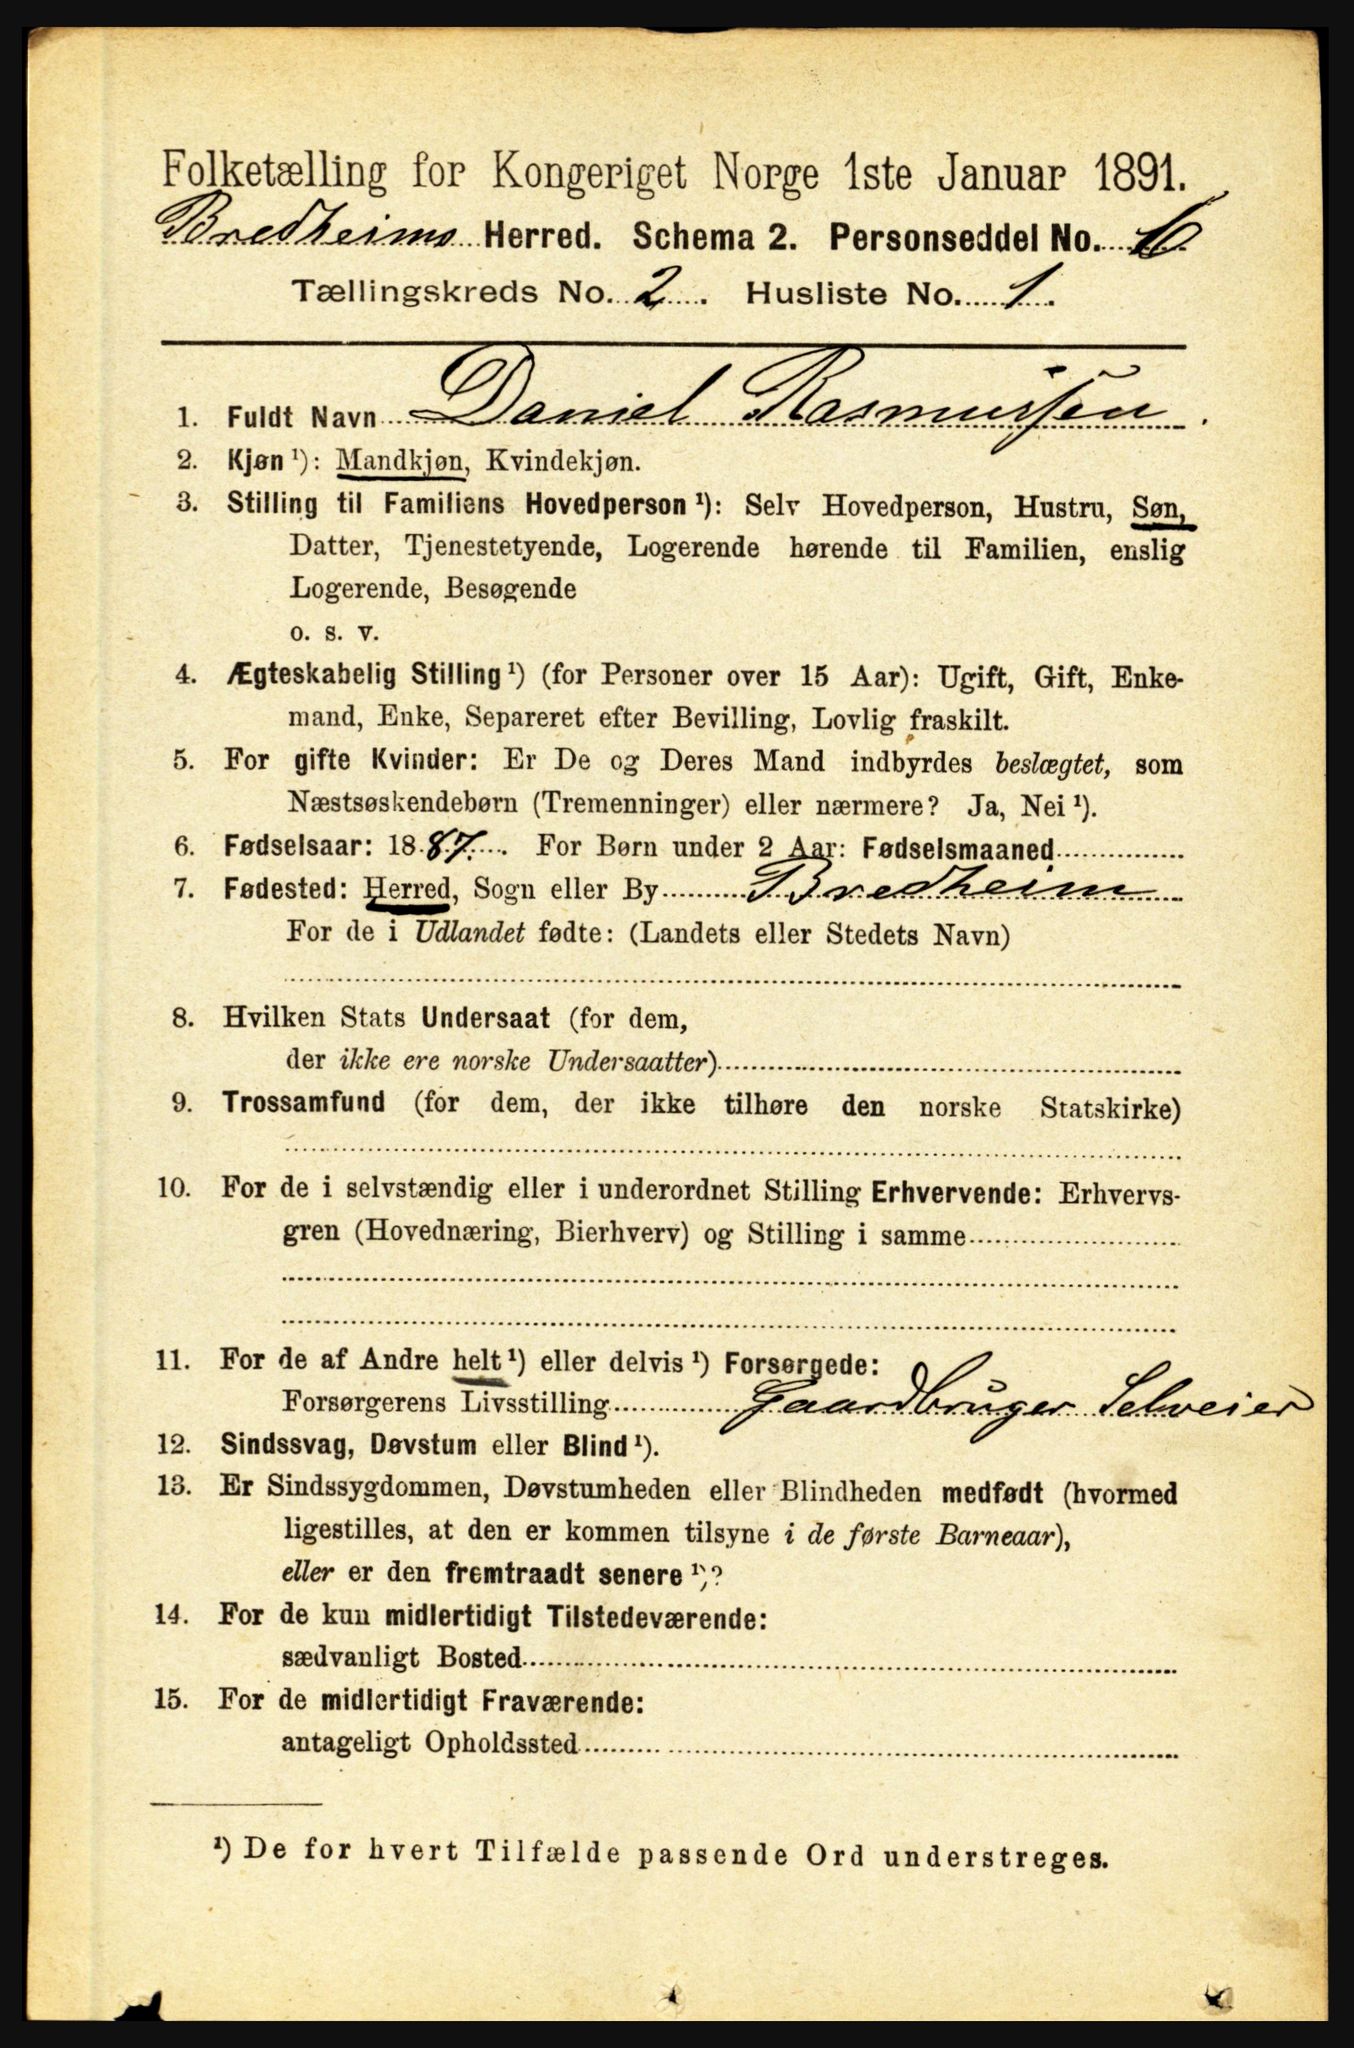 Folketælling for Kongeriget Norge 1ste Januar 1891.
Bredheims Herred. Schema 2. Personseddel No. 10
Tællingskreds No. 2. Husliste No. 1.
1. Fuldt Navn Daniel Rasmussen.
2. Kjøn ¹): Mandkjøn, Kvindekjøn.
3. Stilling til Familiens Hovedperson ¹): Selv Hovedperson, Hustru, Søn,
Datter, Tjenestetyende, Logerende hørende til Familien, enslig
Logerende, Besøgende
o. s. v.
4. Ægteskabelig Stilling ¹) (for Personer over 15 Aar): Ugift, Gift, Enke-
mand, Enke, Separeret efter Bevilling, Lovlig fraskilt.
5. For gifte Kvinder: Er De og Deres Mand indbyrdes beslægtet, som
Næstsøskendebørn (Tremenninger) eller nærmere? Ja, Nei ¹).
6. Fødselsaar: 1887. For Børn under 2 Aar: Fødselsmaaned
7. Fødested: Herred, Sogn eller By Bredheim
For de i Udlandet fødte: (Landets eller Stedets Navn)
8. Hvilken Stats Undersaat (for dem,
der ikke ere norske Undersaatter)
9. Trossamfund (for dem, der ikke tilhøre den norske Statskirke)
10. For de i selvstændig eller i underordnet Stilling Erhvervende: Erhvervs-
gren (Hovednæring, Bierhverv) og Stilling i samme
11. For de af Andre helt ¹) eller delvis ¹) Forsørgede:
Forsørgerens Livsstilling Gaardbruger Selveier
12. Sindssvag, Døvstum eller Blind ¹).
13. Er Sindssygdommen, Døvstumheden eller Blindheden medfødt (hvormed
ligestilles, at den er kommen tilsyne i de første Barneaar),
eller er den fremtraadt senere ¹)?
14. For de kun midlertidigt Tilstedeværende:
sædvanligt Bosted
15. For de midlertidigt Fraværende:
antageligt Opholdssted
¹) De for hvert Tilfælde passende Ord understreges.